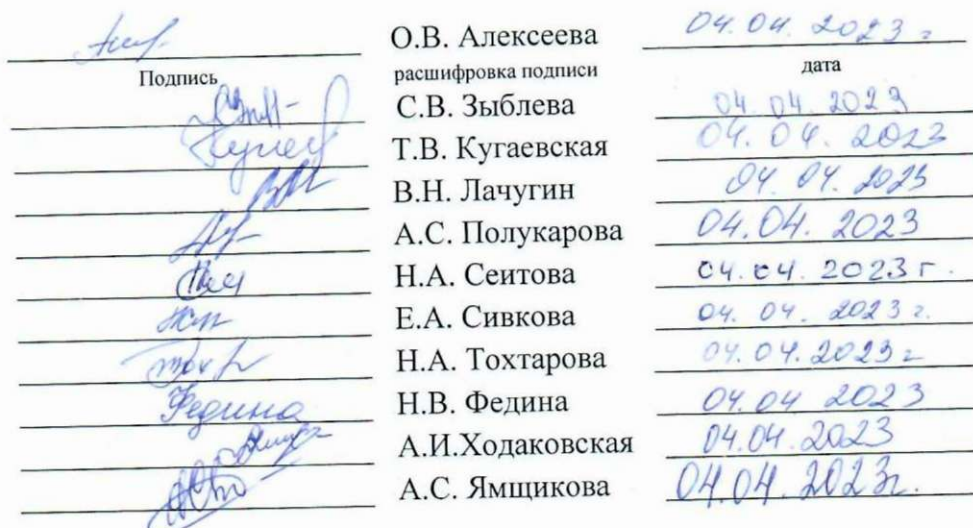 О.В. Алексеева 04.04.2023 г
Подпись расшифровка подписи дата
С.В. Зыблева 04.04.2023
Т.В. Кугаевская 04.04.2023
В.Н. Лачугин 04.04.2023
А.С. Полукарова 04.04.2023
Н.А. Сеитова 04.04.2023 г.
Е.А. Сивкова 04.04.2023 г.
Н.А. Тохтарова 04.04.2023 г
Федина Н.В. Федина 04.04 2023
А.И.Ходаковская 04.04.2023
А.С. Ямщикова 04.04.2023г.